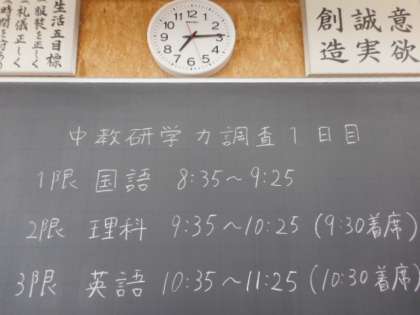 生活五目標
服装を正しく
礼儀正しく
時間を守る
12 1 2 3 4 5 6 7 8 9 10 11
意欲
誠実
創造
中教研学力調査1日目
1限 国語 8:35～9:25
2限 理科 9:35～10:25 (9:30着席)
3限 英語 10:35～11:25 (10:30着席)